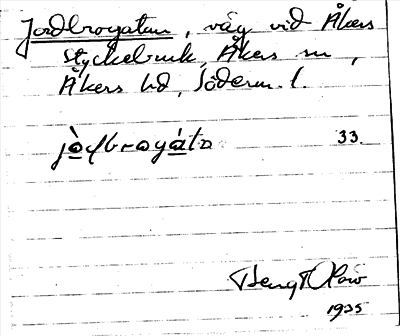 Jordbrogatan, väg vid Åkers
styckebruk, Åkers sn,
Åkers hd, Söderm. l.
jò̲ḍbrogá̲ta 33.
Bengt
1935